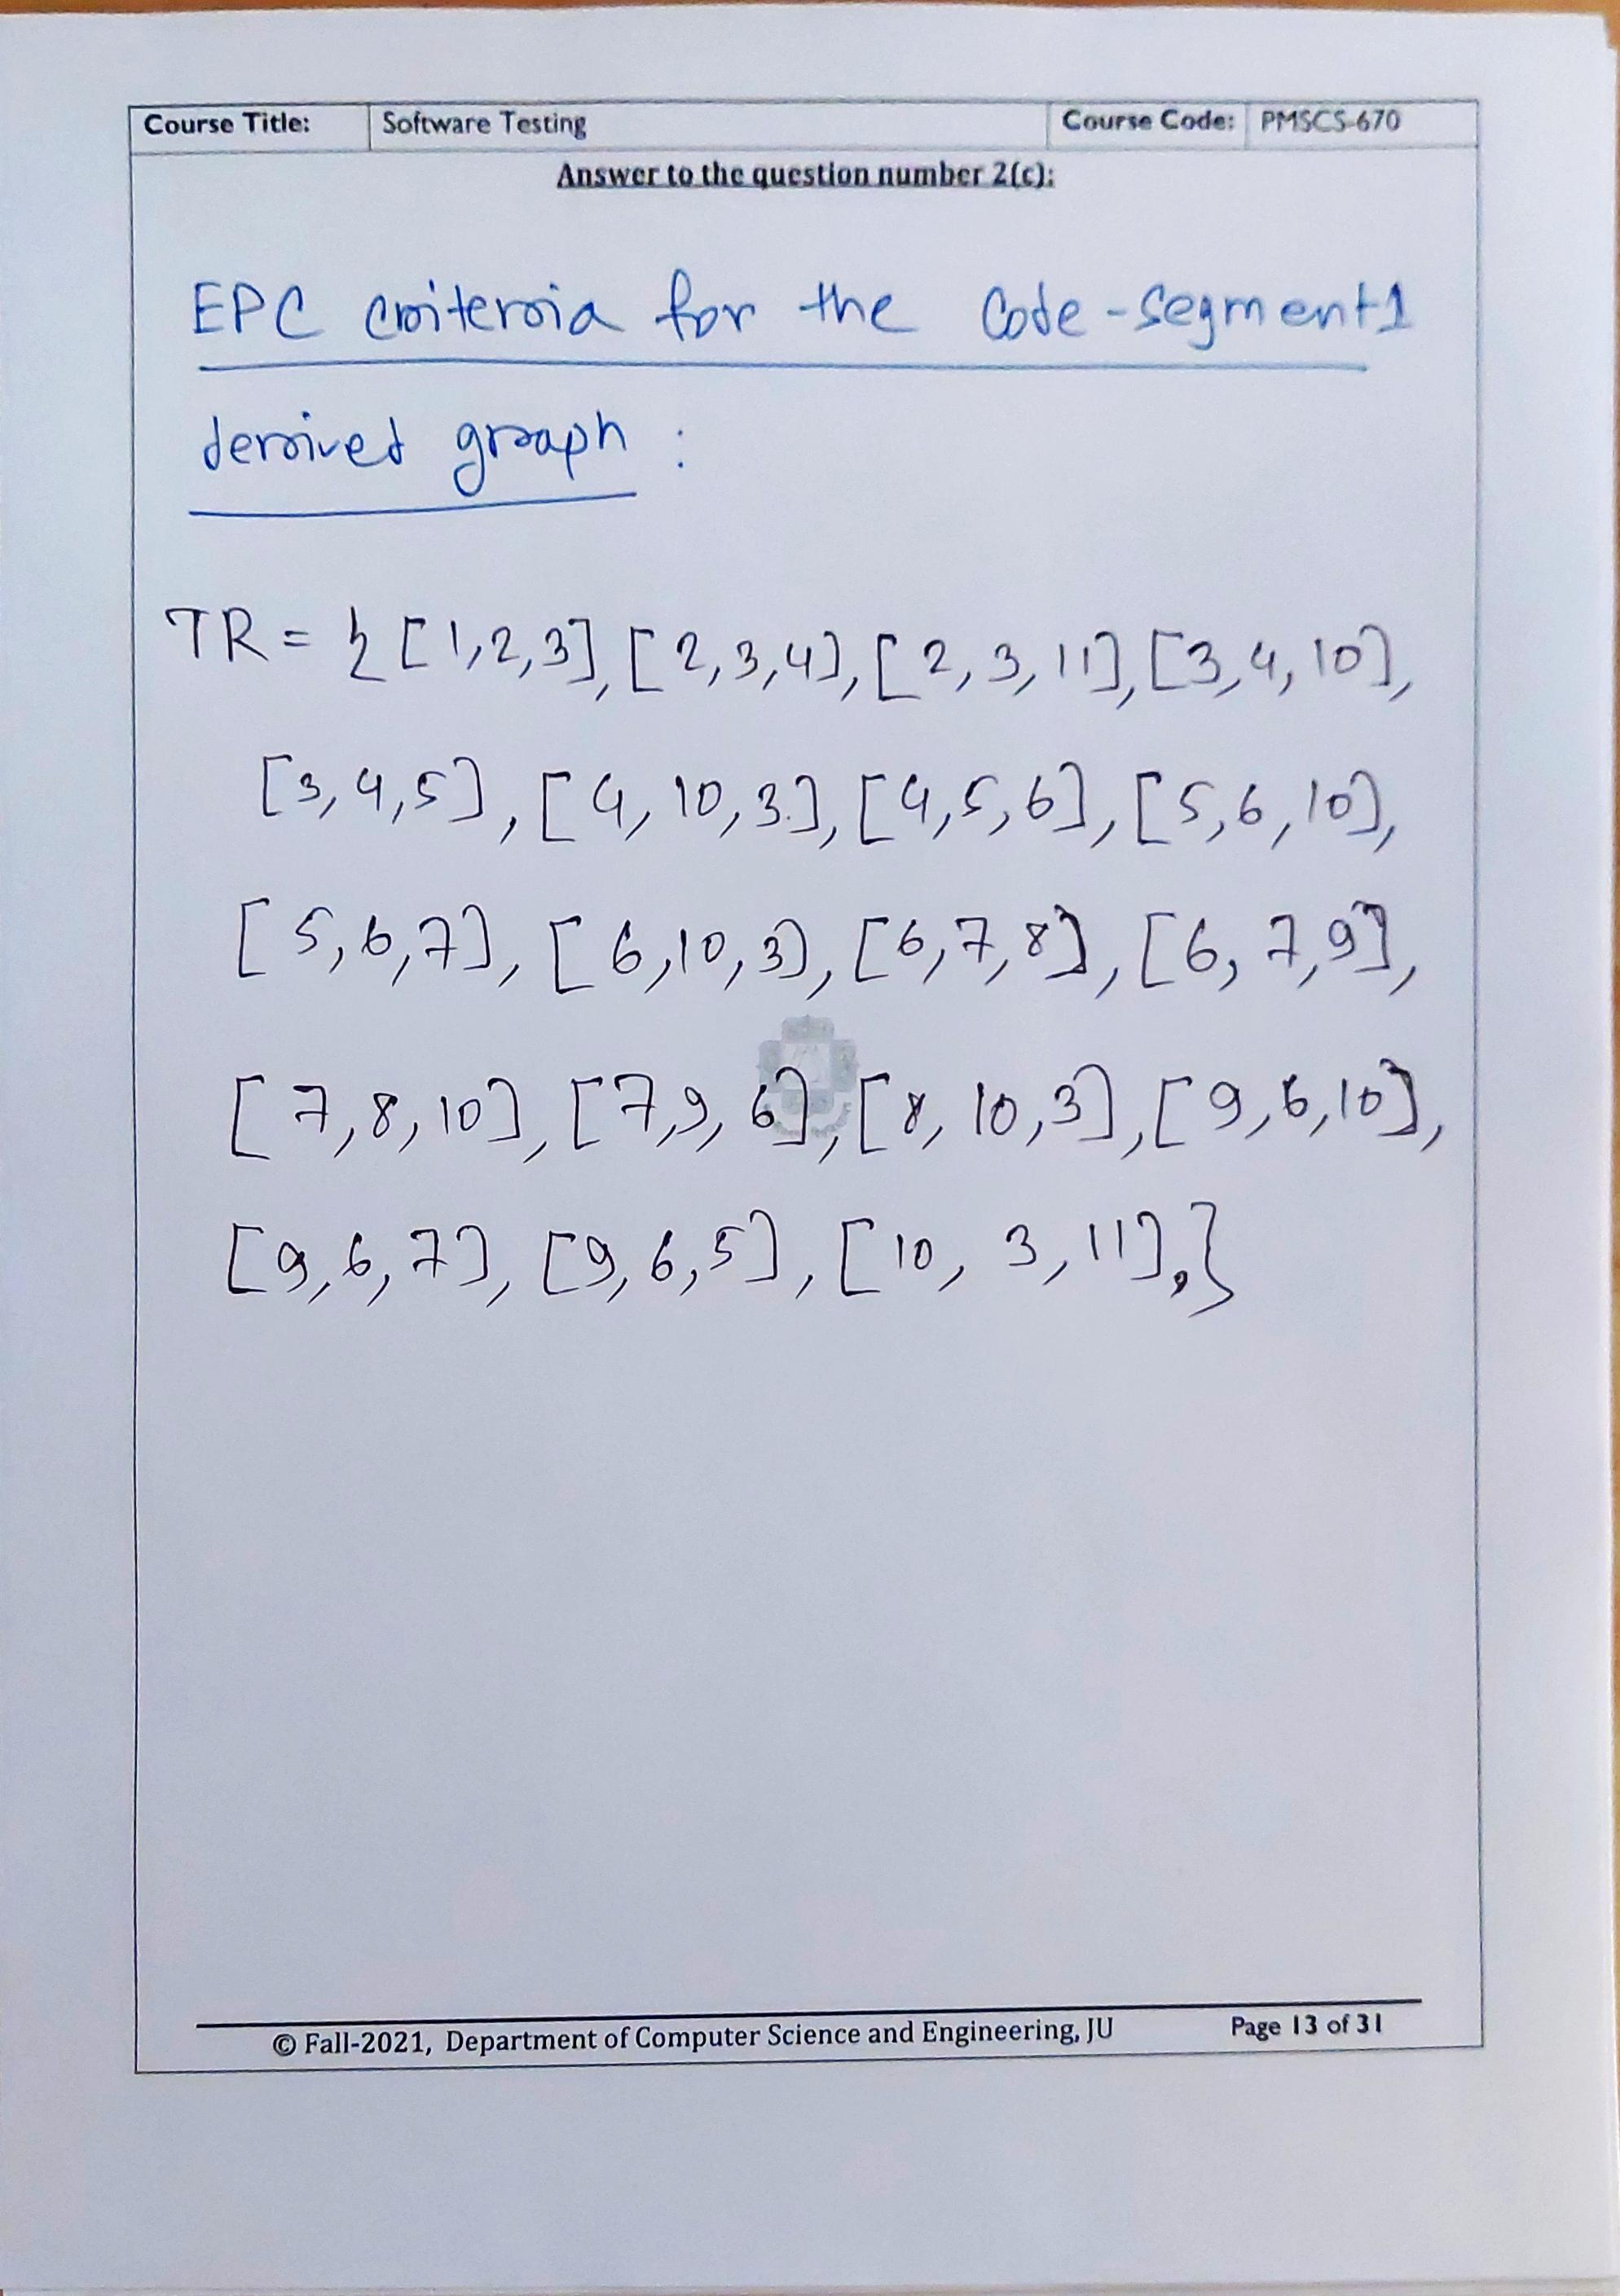 Course Title: Software Testing Course Code: PMSCS-670
Answer to the question number 2(c):
EPC criteria for the Code-Segment1
derived graph :
TR = { [1,2,3], [2,3,4], [2,3,11], [3,4,10],
[3,4,5], [4,10,3], [4,5,6], [5,6,10],
[5,6,7], [6,10,3], [6,7,8], [6,7,9],
[7,8,10], [7,9,6], [8,10,3], [9,6,10],
[9,6,7], [9,6,5], [10,3,11],}
© Fall-2021, Department of Computer Science and Engineering, JU Page 13 of 31